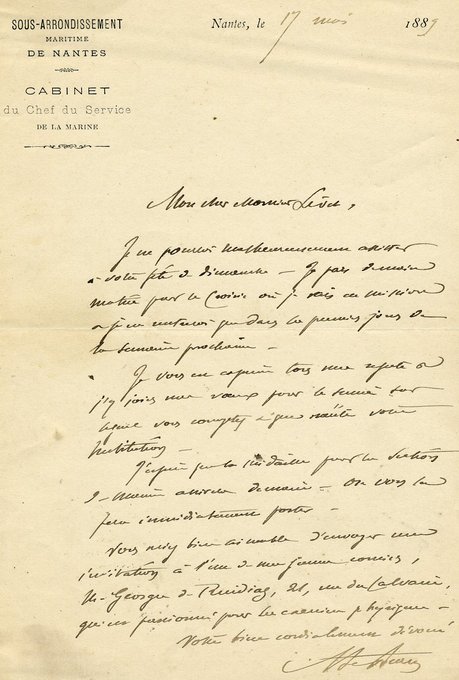 SOUS-ARRONDISSEMENT
MARITIME
DE NANTES
CABINET
du Chef du Service
DE LA MARINE
Nantes, le 17 mai 1889
Mon cher Monsieur
Je ne pourrai malheureusement assister
à votre fête de dimanche – Je pars demain
matin pour le Croisic où je vais en mission
je ne rentrerai que dans les premiers jours de
la semaine prochaine –
Je vous en exprime tous mes regrets et
j'y joins mes vœux pour le succès sur
lequel vous comptez et que mérite votre
Institution –
J'espère que la médaille pour la Section
arrivera demain – On vous la
fera immédiatement porter –
Vous seriez bien aimable d'envoyer une
invitation à l'un de mes jeunes commis,
M. Georges de 21, rue du Calvaire,
qui est passionné pour les exercices physiques –
Votre bien cordialement dévoué